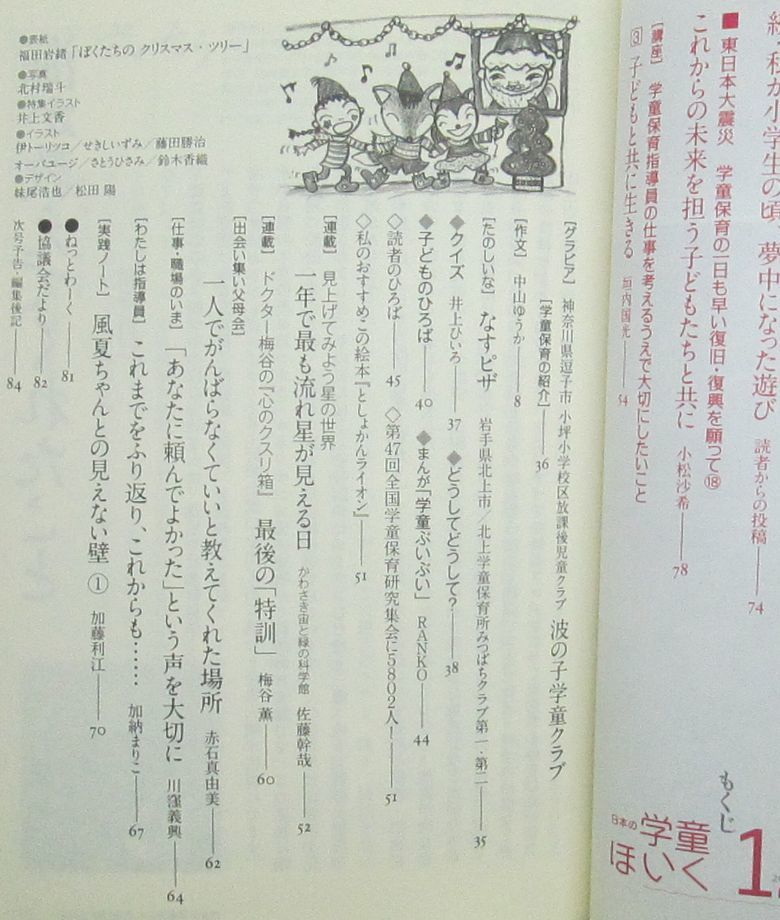 私が小学生の頃 夢中になった遊び 読者からの投稿――74
■東日本大震災 学童保育の一日も早い復旧・復興を願って⑱
これからの未来を担う子どもたちと共に 小松沙希――78
[講座] 学童保育指導員の仕事を考えるうえで大切にしたいこと
③子どもと共に生きる 垣内国光――54
もくじ
日本の学童ほいく
●表紙
福田岩緒「ぼくたちの クリスマス・ツリー」
●写真
北村瑞斗
●特集イラスト
井上文香
●イラスト
伊トーリツコ/せきしいずみ/藤田勝治
オーバユージ/さとうひさみ/鈴木香織
●デザイン
妹尾浩也/松田 陽
[グラビア] 神奈川県逗子市 小坪小学校区放課後児童クラブ 波の子学童クラブ
[学童保育の紹介]――36
[作文] 中山ゆうか――8
[たのしいな] なすピザ 岩手県北上市/北上学童保育所みつばちクラブ第一・第二――35
◆クイズ 井上ひいろ――37 ◆どうしてどうして?――38
◆子どものひろば――40 ◆まんが「学童ぶいぶい」 RANKO――44
◇読者のひろば――45 ◇第47回全国学童保育研究集会に5802人!――51
◇私のおすすめこの絵本『としょかんライオン』――51
[連載] 見上げてみよう星の世界
一年で最も流れ星が見える日 かわさき宙と緑の科学館 佐藤幹哉――52
[連載] ドクター梅谷の『心のクスリ箱』 最後の「特訓」 梅谷 薫――60
[出会い集い父母会]
一人でがんばらなくていいと教えてくれた場所 赤石真由美――62
[仕事・職場のいま] 「あなたに頼んでよかった」という声を大切に 川窪義興――64
[わたしは指導員] これまでをふり返り、これからも…… 加納まりこ――67
[実践ノート] 風夏ちゃんとの見えない壁 ① 加藤利江――70
●ねっとわーく――81
●協議会だより――82
次号予告・編集後記――84